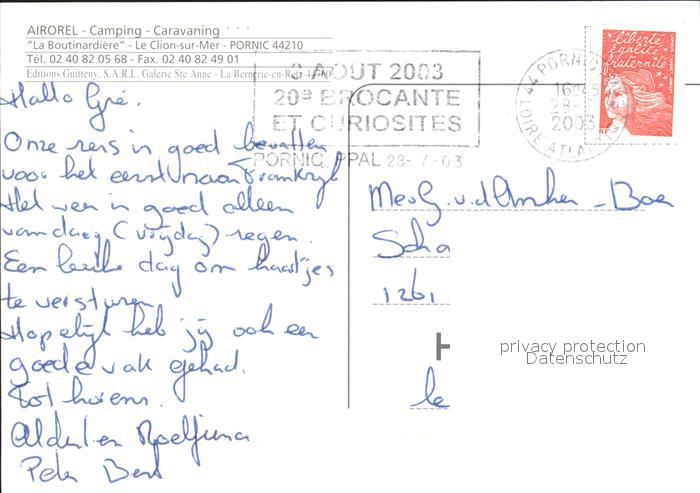 AIROREL - Camping - Caravaning
"La Boutinardière" - Le Clion-sur-Mer - PORNIC 44210
Tél. 02 40 82 05 68 - Fax. 02 40 82 49 01
Editions Guitteny, S.A.R.L. Galerie Ste Anne - La Bernerie-en-Retz 44760
AOUT 2003
20e BROCANTE
ET CURIOSITES
PORNIC PPAL 28-7-03
44 PORNIC
16H45
28-
2003
LOIRE ATLA
liberté
égalité
fraternité
RF
Hallo Gré.
Onze reis is goed bevallen
voor het eerst naar Frankrijk
Het weer is goed alleen
vandaag (vrijdag) regen.
Een leuke dag om kaartjes
te versturen
Hopelijk heb jij ook een
goede vak gehad.
Tot horens.
Peter Bert
Mev G. v.d. - Boer
Scha
1261
H
le
privacy protection
Datenschutz